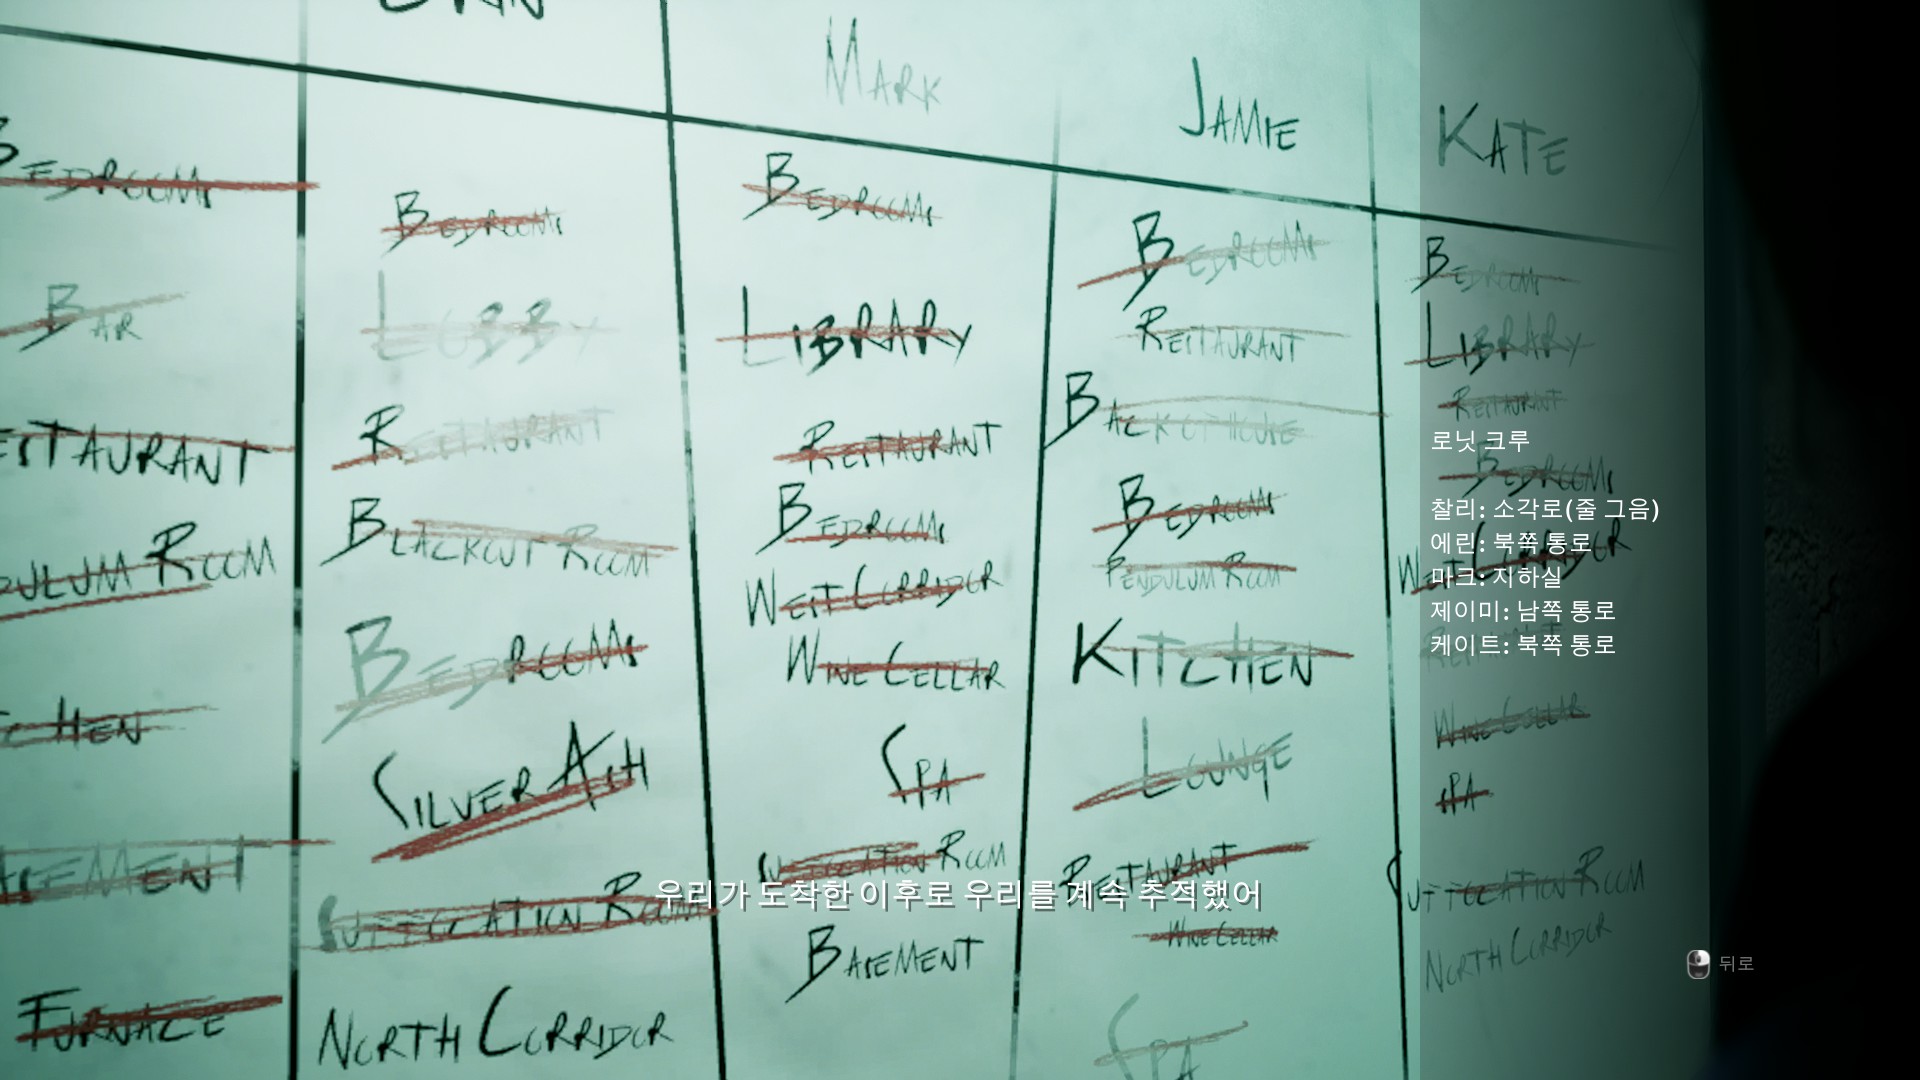 MARK
JAMIE
KATE
BEDROOMS
BAR
RESTAURANT
PENDULUM ROOM
KITCHEN
BASEMENT
FURNACE
BEDROOMS
LOBBY
RESTAURANT
BLACKOUT ROOM
BEDROOMS
SILVER ASH
SUFFOCATION ROOM
NORTH CORRIDOR
BEDROOMS
LIBRARY
RESTAURANT
BEDROOMS
WEST CORRIDOR
WINE CELLAR
SPA
SUFFOCATION ROOM
BASEMENT
BEDROOMS
RESTAURANT
BEDROOMS
PENDULUM ROOM
KITCHEN
LOUNGE
RESTAURANT
WINE CELLAR
SPA
BEDROOMS
LIBRARY
RESTAURANT
BEDROOMS
WEST CORRIDOR
WINE CELLAR
SPA
SUFFOCATION ROOM
NORTH CORRIDOR
로닛 크루
찰리: 소각로(줄 그음)
에린: 북쪽 통로
마크: 지하실
제이미: 남쪽 통로
케이트: 북쪽 통로
우리가 도착한 이후로 우리를 계속 추적했어
뒤로